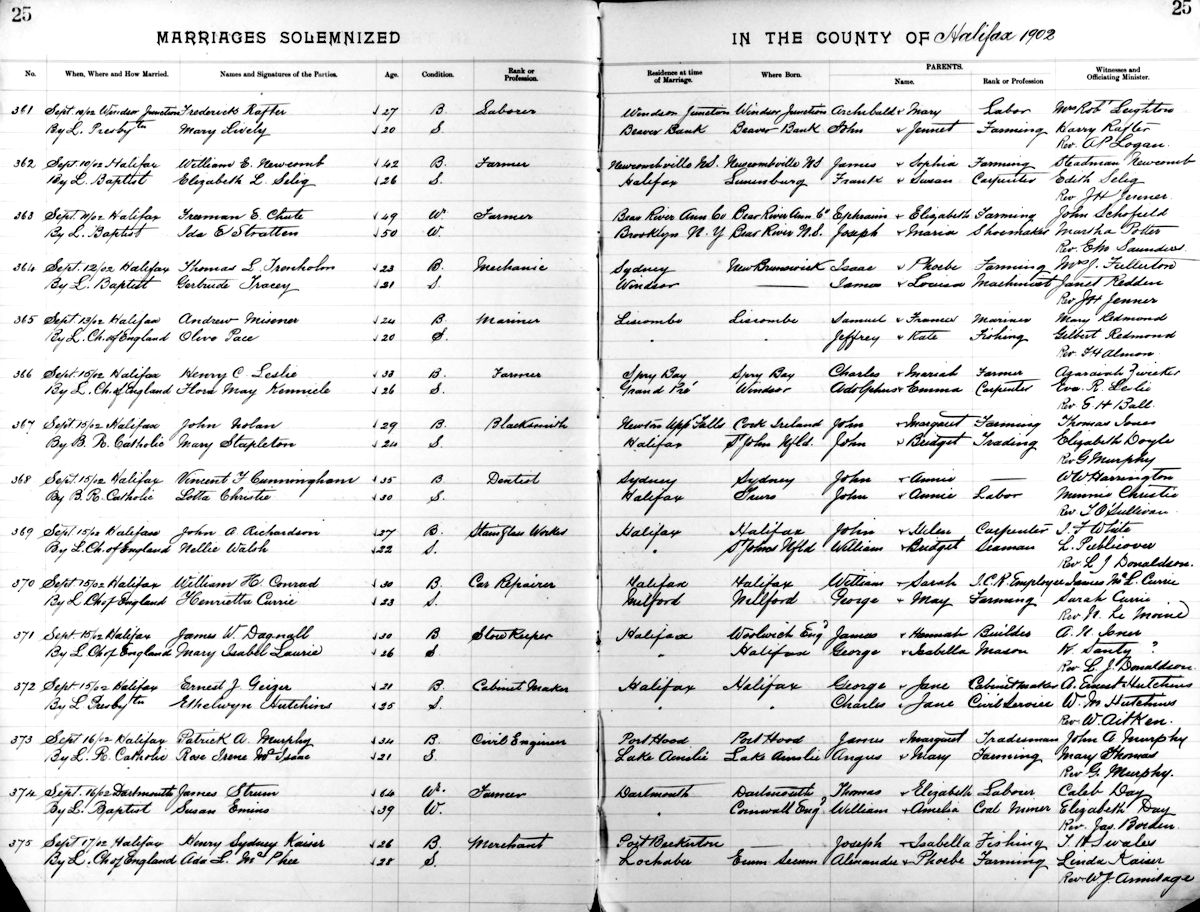 25
25
MARRIAGES SOLEMNIZED IN THE COUNTY OF Halifax 1902
No. When, Where and How Married. Names and Signatures of the Parties. Age. Condition. Rank or Profession. Residence at time of Marriage. Where Born. PARENTS. Name. Rank or Profession Witnesses and Officiating Minister.
361 Sept 10/02 Windsor Junction Frederick Rafter 27 B. Laborer Windsor Junction Windsor Junction Archibald & Mary Labor Mrs Robt Leighton
By L. Presbytn Mary Lively 20 S. Beaver Bank Beaver Bank John & Jennet Farming Harry Rafter
Rev. A P Logan
362 Sept 10/02 Halifax William E. Newcomb 42 B. Farmer Newcombville N.S. Newcombville NS James & Sophia Farming Steadman Newcomb
By L. Baptist Elizabeth L. Selig 26 S. Halifax Lunenburg Frank & Susan Carpenter Edith Selig
Rev J H Jenner
363 Sept 11/02 Halifax Freeman E. Chute 49 Wr. Farmer Bear River Ann Co Bear River Ann Co Ephraim & Elizabeth Farming John Schofield
By L. Baptist Ida E Stratten 50 W. Brooklyn N.Y Bear River N.S. Joseph & Maria Shoemaker Marsha Potter
Rev. E M Saunders
364 Sept. 12/02 Halifax Thomas L. Ironholm 23 B. Mechanic Sydney New Brunswick Isaac & Phoebe Farming Mrs J. Fullerton
By L. Baptist Gertrude Tracey 21 S. Windsor — James & Louisa Machinist Janet Redden
Rev J H Jenner
365 Sept 13/02 Halifax Andrew Misener 24 B Mariner Liscombe Liscombe Samuel & Frances Mariner Mary Redmond
By L. Ch. of England Olive Pace 20 S. " " Jeffrey & Kate Fishing Gilbert Redmond
Rev. F H Almon
366 Sept. 15/02 Halifax Henry C Leslie 33 B. Farmer Spry Bay Spry Bay Charles & Mariah Farmer Azaraiah Zwicker
By L. Ch. of England Flora May Kennicle 26 S. Grand Pré Windsor Adolphus & Emma Carpenter Eva R. Leslie
Rev E H Ball
367 Sept 15/02 Halifax John Nolan 29 B. Blacksmith Newton Upp Falls Cork Ireland John & Margaret Farming Thomas Jones
By B. R. Catholic Mary Stapleton 24 S. Halifax St John Nfld. John & Bridget Trading Elizabeth Doyle
Rev G Murphy
368 Sept. 15/02 Halifax Vincent F Cunningham 35 B. Dentist Sydney Sydney John & Annie — W W Harrington
By B. R. Catholic Lotta Christie 30 S. Halifax Truro John & Annie Labor Minnie Christie
Rev T O'Sullivan
369 Sept 15/02 Halifax John A Richardson 27 B. Stainglass Worker Halifax Halifax John & Helen Carpenter J. F White
By L. Ch. of England Nellie Walsh 22 S. " St Johns Nfld William & Bridget Seaman L. Publicover
Rev L J Donaldson.
370 Sept 15/02 Halifax William H. Conrad 30 B. Car Repairer Halifax Halifax William & Sarah I.C.R Employee James McL. Currie
By L Ch of England Henrietta Currie 23 S. Milford Millford George & May Farming Sarah Currie
Rev N. Le Moine
371 Sept. 15/02 Halifax James W. Dagnall 30 B Store Keeper Halifax Woolwich Eng'd James & Hannah Builder
By L Ch of England Mary Isabel Laurie 26 S. " Halifax George & Isabella Mason W. Santy "
Rev L. J. Donaldson.
372 Sept 15/02 Halifax Ernest J. Geizer 21 B. Cabinet Maker Halifax Halifax George & Jane Cabinetmaker A. Ernest Hutchins
By L Presbytn Ethelwyn Hutchins 25 S. " " Charles & Jane Civil Service W. M Hutchins
Rev. W Aitken.
373 Sept 16/02 Halifax Patrick A. Murphy 34 B. Civil Engineer Port Hood Port Hood James & Margaret Tradesman John A Murphy
By L. R. Catholic Rose Irene McIsaac 21 S. Lake Ainslie Lake Ainslie Angus & Mary Farming Mary Thomas
Rev G. Murphy.
374 Sept. 16/02 Dartmouth James Strum 64 Wr. Farmer Dartmouth Dartmouth Thomas & Elizabeth Labour Caleb Day
By L. Baptist Susan Emins 39 W. " Cornwall Eng'd William & Amelia Coal Miner Elizabeth Day
Rev. Jas. Borden
375 Sept 17/02 Halifax Henry Sydney Kaiser 26 B. Merchant Port Beckerton — Joseph & Isabella Fishing
By L. Ch of England Ada L. McPhee 28 S Lochaber Ecum Secum Alexander & Phoebe Farming Linda Kaiser
Rev W J Armitage